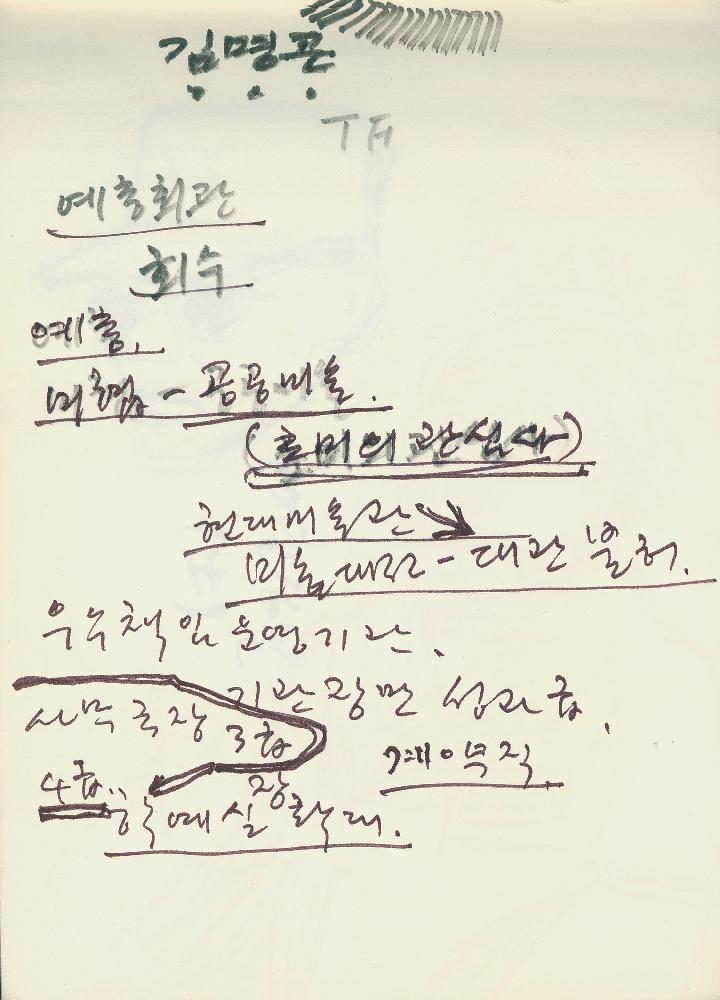 김명곤
TF
예총회관
회수
예총.
미협 - 공공미술.
(흥미의 관심사)
현대미술관
미술대전 - 대관 불허.
우수책임운영기관.
기관장만 성과급.
사무국장 3급
계약직.
4급..
학예실장 확대.